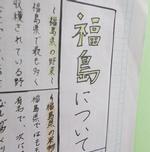 福島について
〜福島県の野菜〜
福島県で最も多く
収穫されている野
〜福島県の
福島県ではもも
有名で、次に